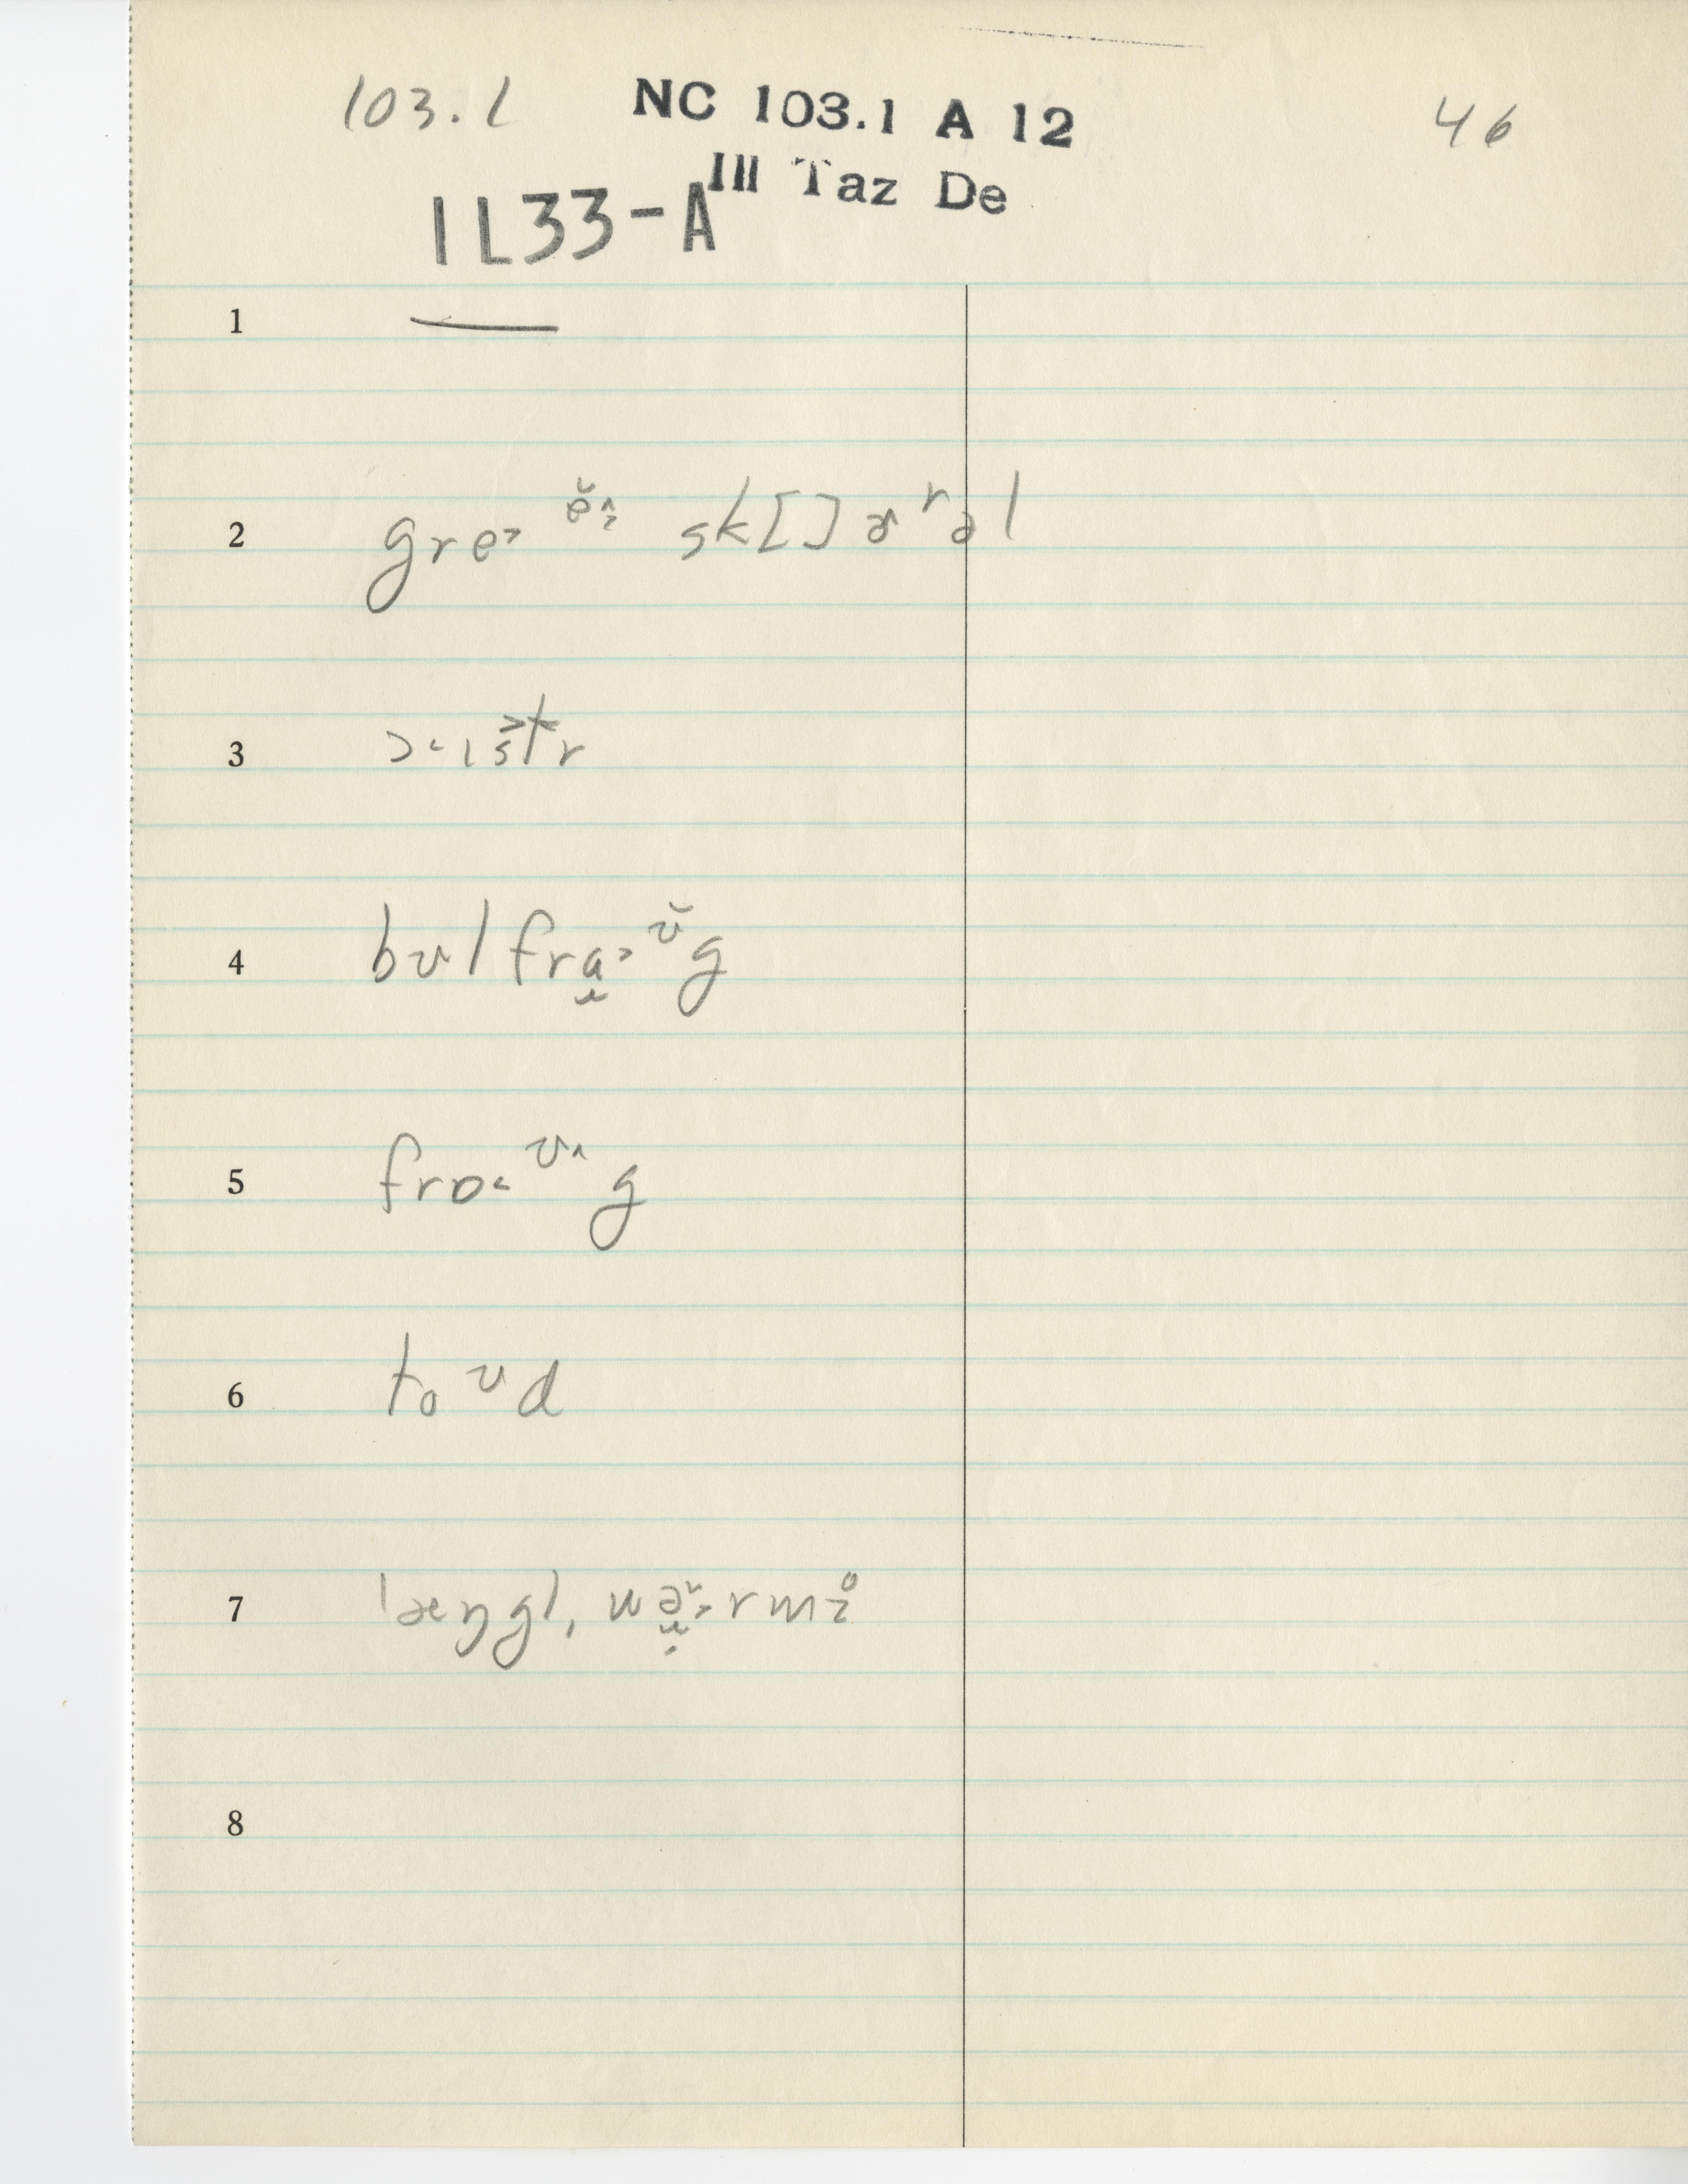 103.1 NC 103.1 A 12 46
Ill Taz De
IL33-A
1 —
2 gre˃ ĕ˄˒ sk[]ɚʳəl
3 ɔ˂ɪs̬t̬r
4 bʊlfrɑ̫˃ʊ̆g
5 frɒ˂ʊ˄g
6 toʊd
7 ˈæŋgl, wə̫˞˃rmɨ̊
8